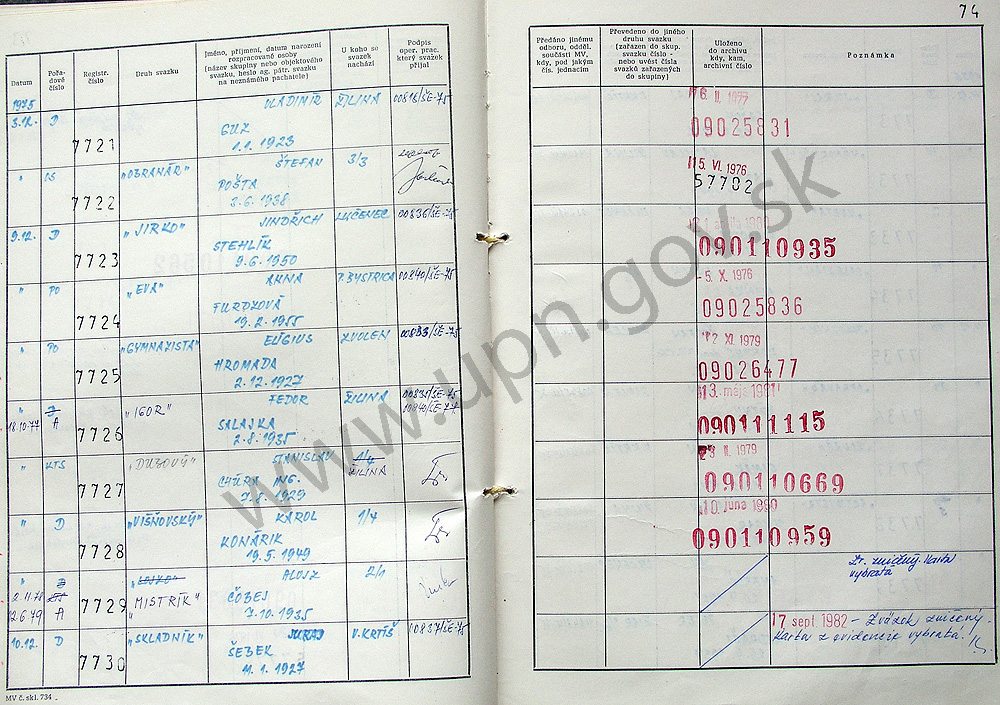 74
Datum
Pořa-
dové
číslo
Registr.
číslo
Druh svazku
Jméno, příjmení, datum narození
rozpracované osoby
(název skupiny nebo objektového
svazku, heslo ag. pátr. svazku
na neznámého pachatele)
U koho se
svazek
nachází
Podpis
oper. prac.
který svazek
přijal
Předáno jinému
odboru, odděl.
součásti MV,
kdy, pod jakým
čís. jednacím
Převedeno do jiného
druhu svazku
(zařazen do skup.
svazku číslo -
nebo uvést čísla
svazků zařazených
do skupiny)
Uloženo
do archivu
kdy, kam,
archivní číslo
Poznámka
1975
3.12. D 7721 VLADIMÍR ŽILINA 00816/ŠE-75
GUZ
1.1. 1923
16. II. 1977
09025831
" 7722 „OBRANÁR" ŠTEFAN 3/3
POŠTA
3.6. 1938
15. VI. 1976
57702
9.12. D 7723 „JIRKO" JINDŘICH LUČENEC 00836/ŠE-75
STEHLÍK
9.6. 1950
090110935
" PO 7724 „EVA" ANNA P. BYSTRICA 00840/ŠE-75
FURDZOVÁ
19.2. 1955
-5. X. 1976
09025836
" PO 7725 „GYMNAZISTA" ELÍGIUS ZVOLEN 00833/ŠE-75
HROMADA
2.12. 1927
12 XI. 1979
09026477
" 7726 „IGOR" FEDOR ŽILINA 00835/ŠE-75
18.10.77 A SALAJKA
2.8. 1935
13. mája 1981
090111115
" KTS 7727 „DUBOVÝ" STANISLAV 1/4
ŽILINA
ING.
7.8. 1929
II. 1979
090110669
" D 7728 „VIŠŇOVSKÝ" KAROL 1/4
KONÁRIK
19.5. 1949
10. júna 1980
090110959
" 7729 ALOJZ 2/1
12.6.79 A „MISTRÍK" ČOBEJ
7.10. 1935
Karta
vybratá
10.12. D 7730 „SKLADNÍK" JURAJ V. KRTÍŠ 00837/ŠE-75
ŠEBEK
1. 1927
17 sept 1982 - Zväzok zničený.
Karta z evidencie vybratá.
MV č. skl. 734
www.upn.gov.sk